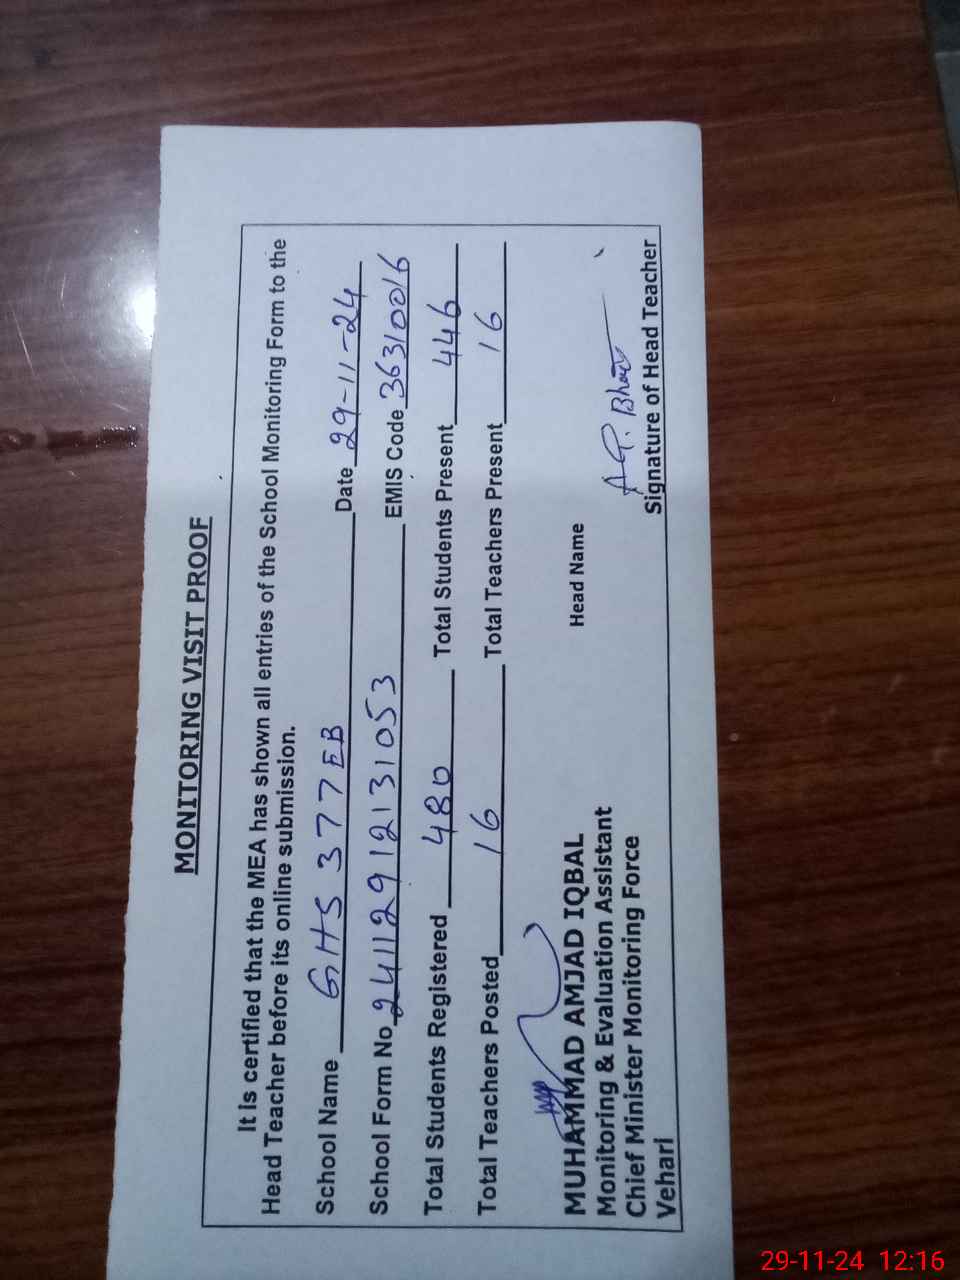 MONITORING VISIT PROOF
It is certified that the MEA has shown all entries of the School Monitoring Form to the
Head Teacher before its online submission.
School Name GHS 377 EB Date 29-11-24
School Form No 241129121 31053 EMIS Code 36310016
Total Students Registered 480 Total Students Present 446
Total Teachers Posted 16 Total Teachers Present 16
MUHAMMAD AMJAD IQBAL Head Name
Monitoring & Evaluation Assistant
Chief Minister Monitoring Force
Vehari Signature of Head Teacher
29-11-24 12:16